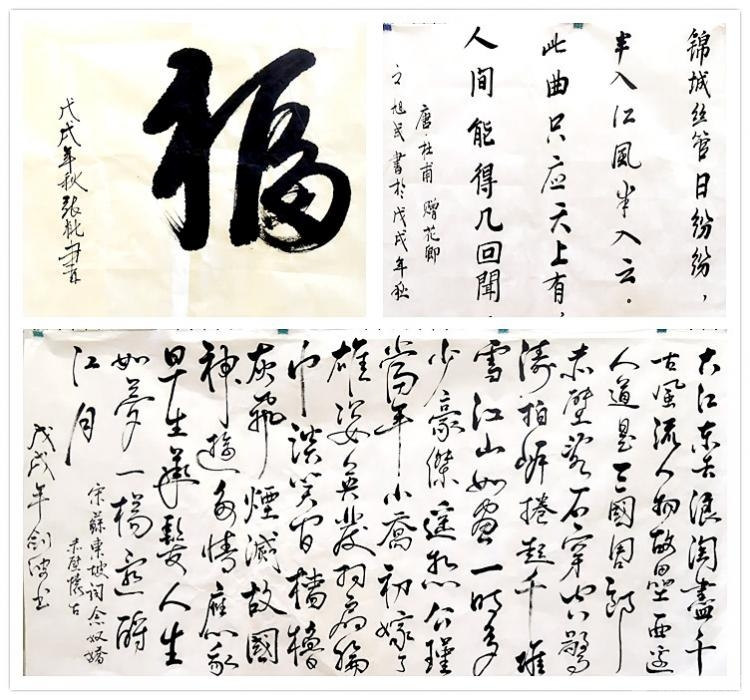 福
戊戌年秋張
錦城丝管日纷纷，
半入江風半入云．
此曲只应天上有，
人间能得几回聞．
唐·杜甫 赠花卿
文旭民書於戊戌年秋
大江东去浪淘盡千
古風流人物故壘西邊
人道是三國周郎
赤壁乱石穿空驚
濤拍岸捲起千堆
雪江山如畫一時多
少豪傑遥想公瑾
當年小喬初嫁了
雄姿英發羽扇綸
巾談笑间檣櫓
灰飛煙滅故國
神遊多情應笑我
早生華髮人生
如夢一樽還酹
江月
宋蘇東坡词念奴嬌
赤壁懷古
戊戌年劍波书